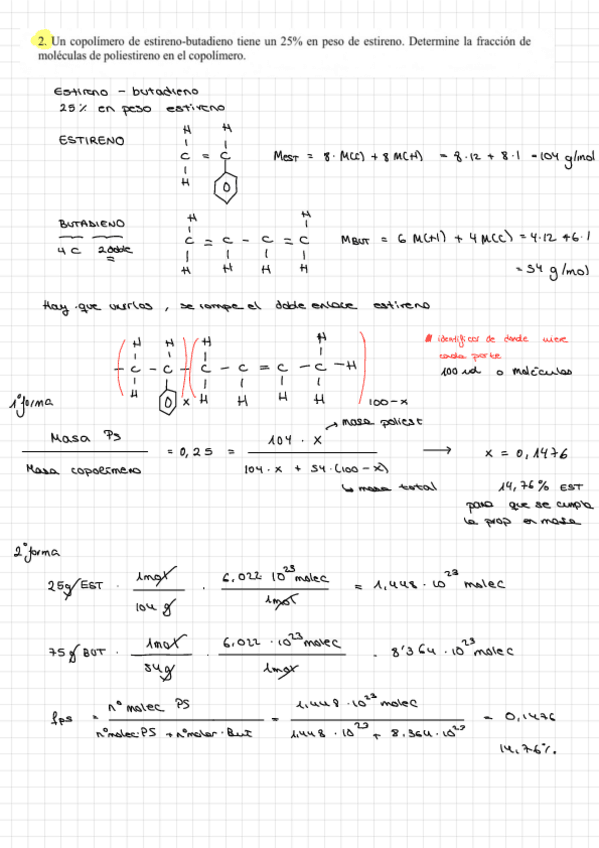 2. Un copolímero de estireno-butadieno tiene un 25% en peso de estireno. Determine la fracción de
moléculas de poliestireno en el copolímero.
Estireno - butadieno
25% en peso estireno
ESTIRENO
H H
C = C
H
M EST = 8 · M(C) + 8 M(H) = 8·12 + 8·1 = 104 g/mol
BUTADIENO
4 C 2 doble
H H
C = C - C = C
H H H H
M BUT = 6 M(H) + 4 M(C) = 4·12 + 6·1
= 54 g/mol
Hay que unirlos, se rompe el doble enlace estireno
H H H H
- C - C - C - C = C - C - H
H x H H H H 100-x
identificar de donde viene
cada parte
100 ud o moléculas
1ª forma
masa poliest
Masa PS / Masa copolímero = 0,25 = 104 · x / 104·x + 54·(100-x) → x = 0,1476
masa total
14,76% EST
para que se cumpla
la prop en masa
2ª forma
25g EST · 1mol / 104 g · 6,022·10^23 molec / 1mol = 1,448·10^23 molec
75g BUT · 1mol / 54g · 6,022·10^23 molec / 1mol = 8'364·10^23 molec
fps = nº molec PS / nº molec·PS + nº molec·But = 1,448·10^23 molec / 1,448·10^23 + 8,364·10^23 = 0,1476
14,76%.